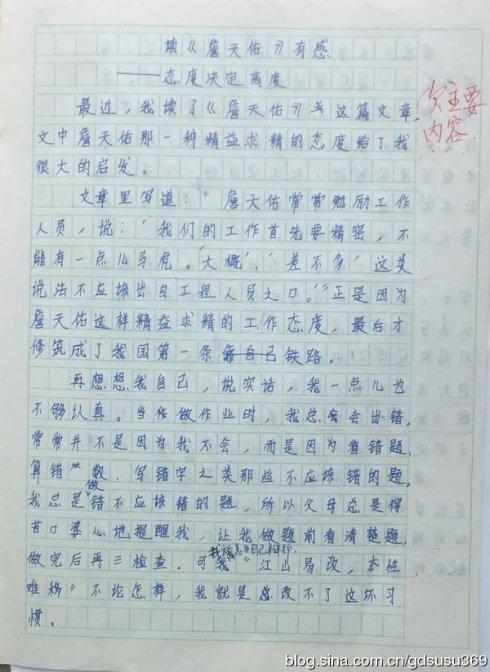 读《詹天佑》有感
——态度决定高度
最近，我读了《詹天佑》这篇文章，
文中詹天佑那一种精益求精的态度给了我
很大的启发。
文章里写道：“詹天佑常常勉励工作
人员，说：‘我们的工作首先要精密，不
能有一点儿马虎。‘大概’、‘差不多’这类
说法不应该出自工程人员之口。’”正是因为
詹天佑这样精益求精的工作态度，最后才
修筑成了我国第一条铁路。
再想想我自己，说实话，我一点儿也
不够认真。当作做作业时，我总会出错，
常常并不是因为我不会，而是因为看错题、
算错数、写错字之类那些不应该错的题。
我总是做错不应该错的题，所以父母总是得
苦口婆心地提醒我，让我做题前看清楚题，
做完后再三检查。可我“江山易改，本性
难移”不论怎样，我就是总改不了这坏习
惯。
主要
内容
blog.sina.com.cn/gdsusu369